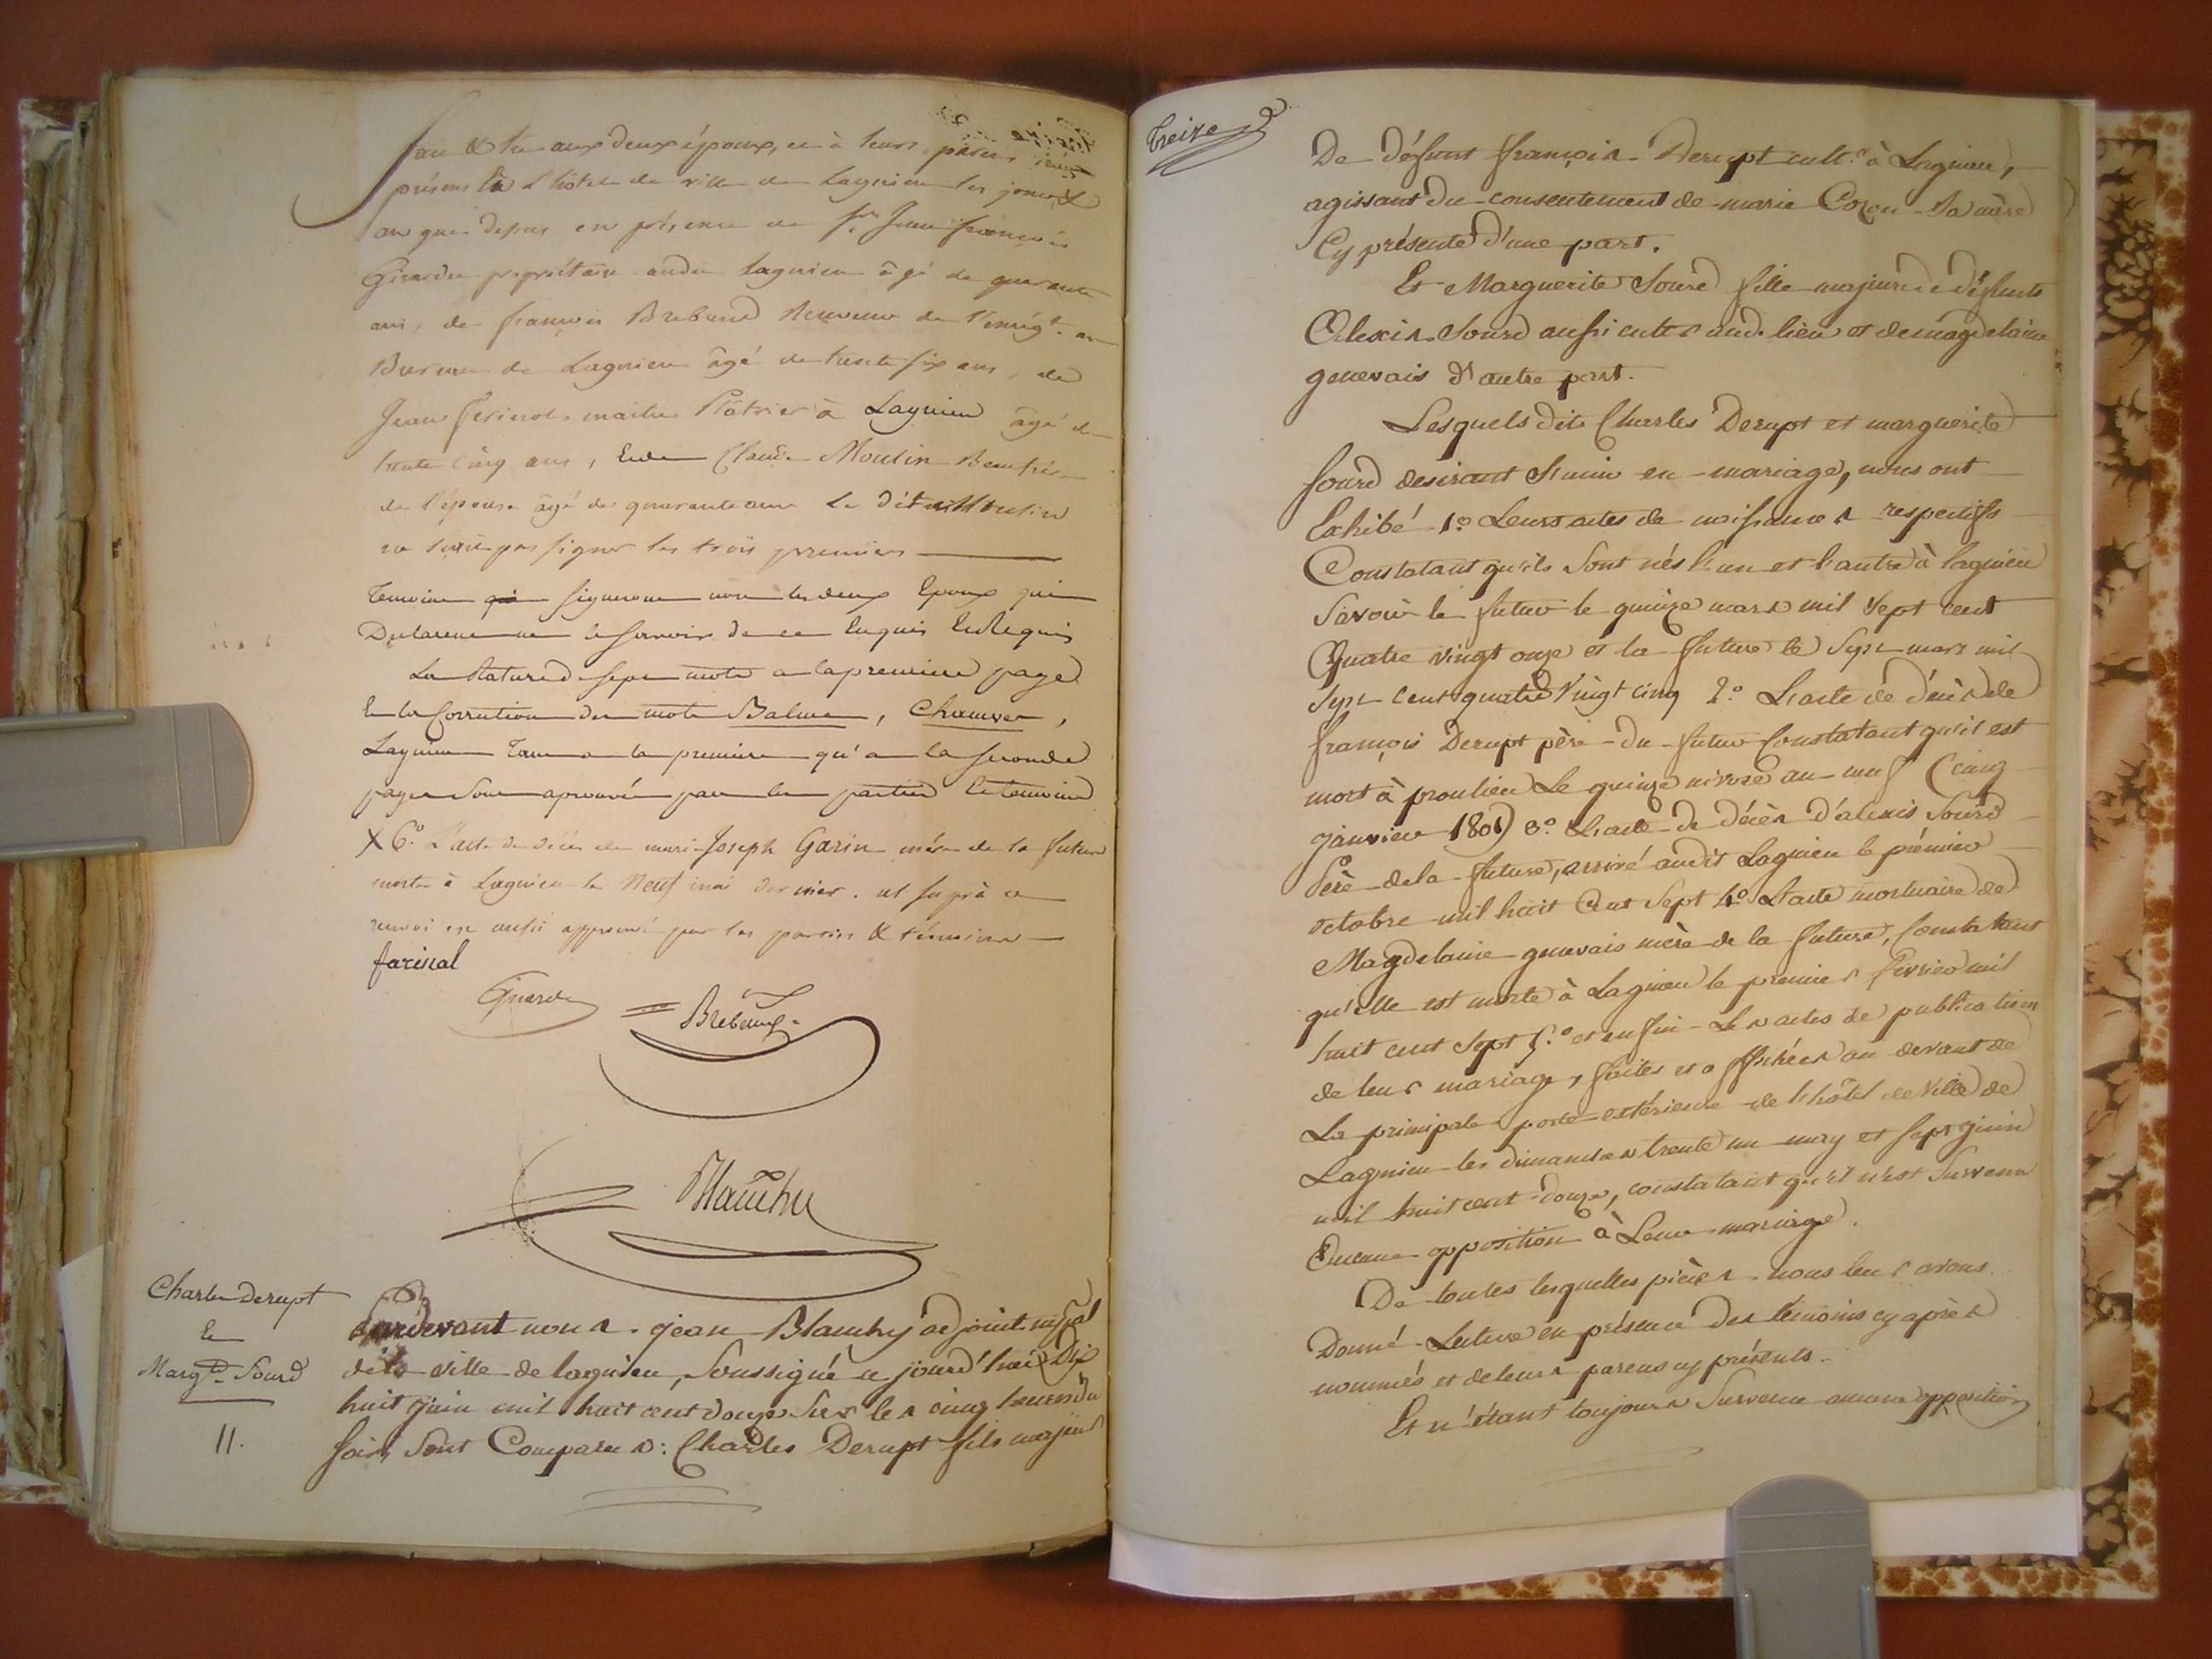 fait & lu aux deux époux, et à leurs parens
présens à L'hôtel de ville de Lagnieu les jour &
an que dessus en présence de Sr. Jean françois
Girardin propriétaire audit Lagnieu âgé de quarante
ans, de françois Breband Receveur de l'enrégt. au
Bureau de Lagnieu âgé de trente six ans, de
Jean ferinal maitre Plâtrier à Lagnieu âgé de
trente cinq ans, Et de Claude Moulin Beaufrère
de l'épouse âgé de quarante ans Le dit Moulin
ne sçait pas signer les trois premiers
temoins qui signeront non les deux Epoux qui
Declarent ne le savoir de ce Enquis Et Requis
La Rature de sept mots a la premiere page
Et la Correction des mots Balme, Chamver,
Lagnieu Tant a la premiere qu'a la seconde
pages sont aprouvés par les parties Et temoins
X 6.° L'acte de décès de marie-Joseph Garin mère de la future
morte à Lagnieu le Neuf mai dernier. ut suprà ce
renvoi est aussi approuvé par les parties & témoins
farinal
Girardin
Breband
Blanchy
Charles derupt
Et
Margte. Sourd
11.
Pardevant nous jean Blanchy adjoint mpal
de la ville de lagnieu, Soussigné ce jourd'hui Dix
huit juin mil huit cent douze Sur les cinq heures du
soir, Sont Comparus: Charles Derupt fils majeur
treize
De défunt françois Derupt cultr. à Lagnieu,
agissant du consentement de marie Cozon Sa mère
Cy présente d'une part.
Et Marguerite Sourd fille majeure de défunts
Alexis Sourd aussi cultr aud. lieu et de magdelaine
genevais d'autre part.
Lesquels dits Charles Derupt et marguerite
Sourd desirant s'unir en mariage, nous ont
Exhibé 1.° Leurs actes de naissances respectifs
Constatant qu'ils Sont nés l'un et l'autre à lagnieu
Savoir le futur le quinze mars mil Sept cent
Quatre vingt onze et la future le Sept mars mil
Sept cent quatre Vingt cinq 2.° L'acte de décès de
françois Derupt père du futur Constatant qu'il est
mort à proulieu Le quinze nivose an neuf (cinq
janvier 1801) 3.° L'acte de décès d'alexis Sourd
Père de la future, arrivé audit Lagnieu le prémier
octobre mil huit Cent Sept 4.° L'acte mortuaire de
Magdelaine genevais mère de la future, Constatant
qu'elle est morte à Lagnieu le premier février mil
huit cent Sept 5.° et enfin Les actes de publication
de leur mariage, faites et affichées au devant de
La principale porte extérieure de l'hôtel de Ville de
Lagnieu les dimanches trente un may et sept juin
mil huit cent douze, constatant qu'il n'est Survenu
Aucune opposition à Leur mariage.
De toutes lesquelles pièces nous leur avons
Donné Lecture en présence des témoins cy après
nommés et de leurs parens cy présents.
Et n'étant toujours Survenu aucune opposition